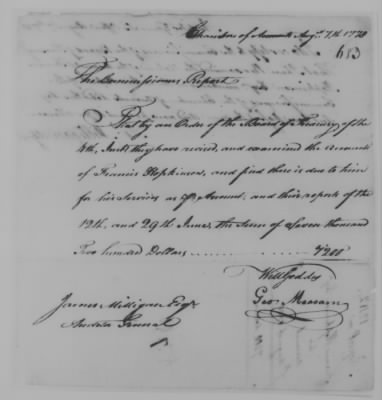 Chamber of Accounts Augt. 7th 1780
653
The Commissioners Report
That by an Order of the Board of Treasury of the
4th. Inst. they have revised, and examined the accounts
of Francis Hopkinson, and find there is due to him
for his Services as Account, and their reports of the
19th, and 29th June, the Sum of Seven thousand
Two hundred Dollars ........ 7200
Will Geddes
James Milligan Esqr
Geo
Auditor General